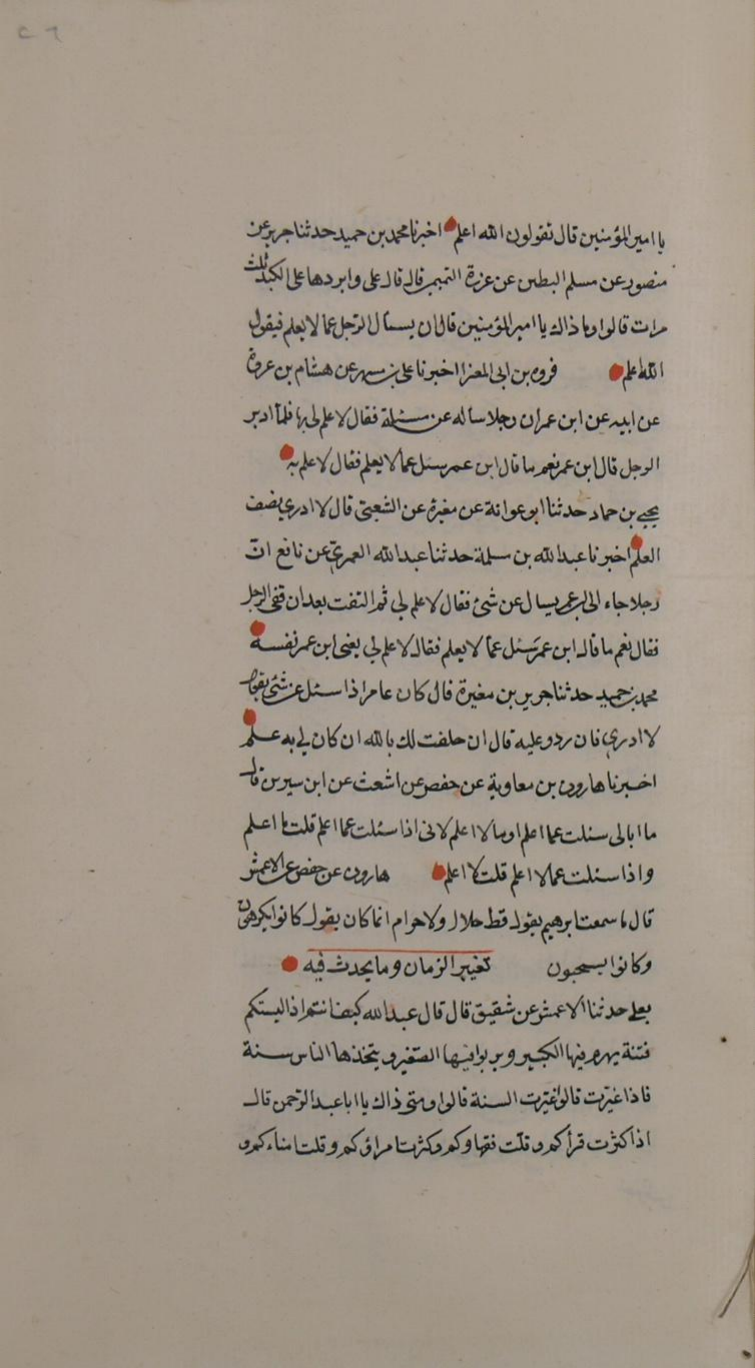 يا امير المؤمنين قال تقولون الله اعلم اخبرنا محمد بن حميد حدثنا جرير عن
منصور عن مسلم البطين عن عزرة التميمي قال قال علي وابردها على الكبد ثلث
مرات قالوا وما ذاك يا امير المؤمنين قال ان يسئال الرجل عما لا يعلم فيقول
الله اعلم فروه بن ابى المغرا اخبرنا على بن مسهر عن هشام بن عروة
عن ابيه عن ابن عمر ان رجلا ساله عن مسئلة فقال لا علم لى بها فلما ادبر
الرجل قال ابن عمر نعم ما قال ابن عمر سئل عما لا يعلم فقال لا علم به
يحيى بن حماد حدثنا ابو عوانة عن مغيرة عن الشعبى قال لا ادرى نصف
العلم اخبرنا عبد الله بن سلمة حدثنا عبد الله العمرى عن نافع ان
رجلا جاء الى ابن عمر يسال عن شئ فقال لا علم لي ثم التفت بعد ان قفى الرجل
فقال نعم ما قال ابن عمر سئل عما لا يعلم فقال لا علم لي يعنى ابن عمر نفسه
محمد بن حميد حدثنا جرير بن مغيرة قال كان عامر اذا سئل عن شئ يقول
لا ادرى فان ردو عليه قال ان حلفت لك بالله ان كان لي به علم
اخبرنا هارون بن معاوية عن حفص عن اشعث عن ابن سيرين قال
ما ابالى سئلت عما اعلم او ما لا اعلم لانى اذا سئلت عما اعلم قلت ما اعلم
واذا سئلت عما لا اعلم قلت لا اعلم هارون عن حفص عن الاعمش
قال ما سمعت ابرهيم يقول قط حلال ولا حرام انما كان يقول كانوا يكرهون
وكانوا يستحبون تغيير الزمان وما يحدث فيه
يعلى حدثنا الاعمش عن شقيق قال قال عبد الله كيف انتم اذا لبستكم
فتنة يهرم فيها الكبير ويربو فيها الصغير ويتخذها الناس سنة
فاذا غيرت قالوا غيرت السنة قالوا ومتى ذاك يا ابا عبد الرحمن قال
اذا كثرت قرأكم وقلت فقهاوكم وكثرت امراؤكم وقلت امناءكم و